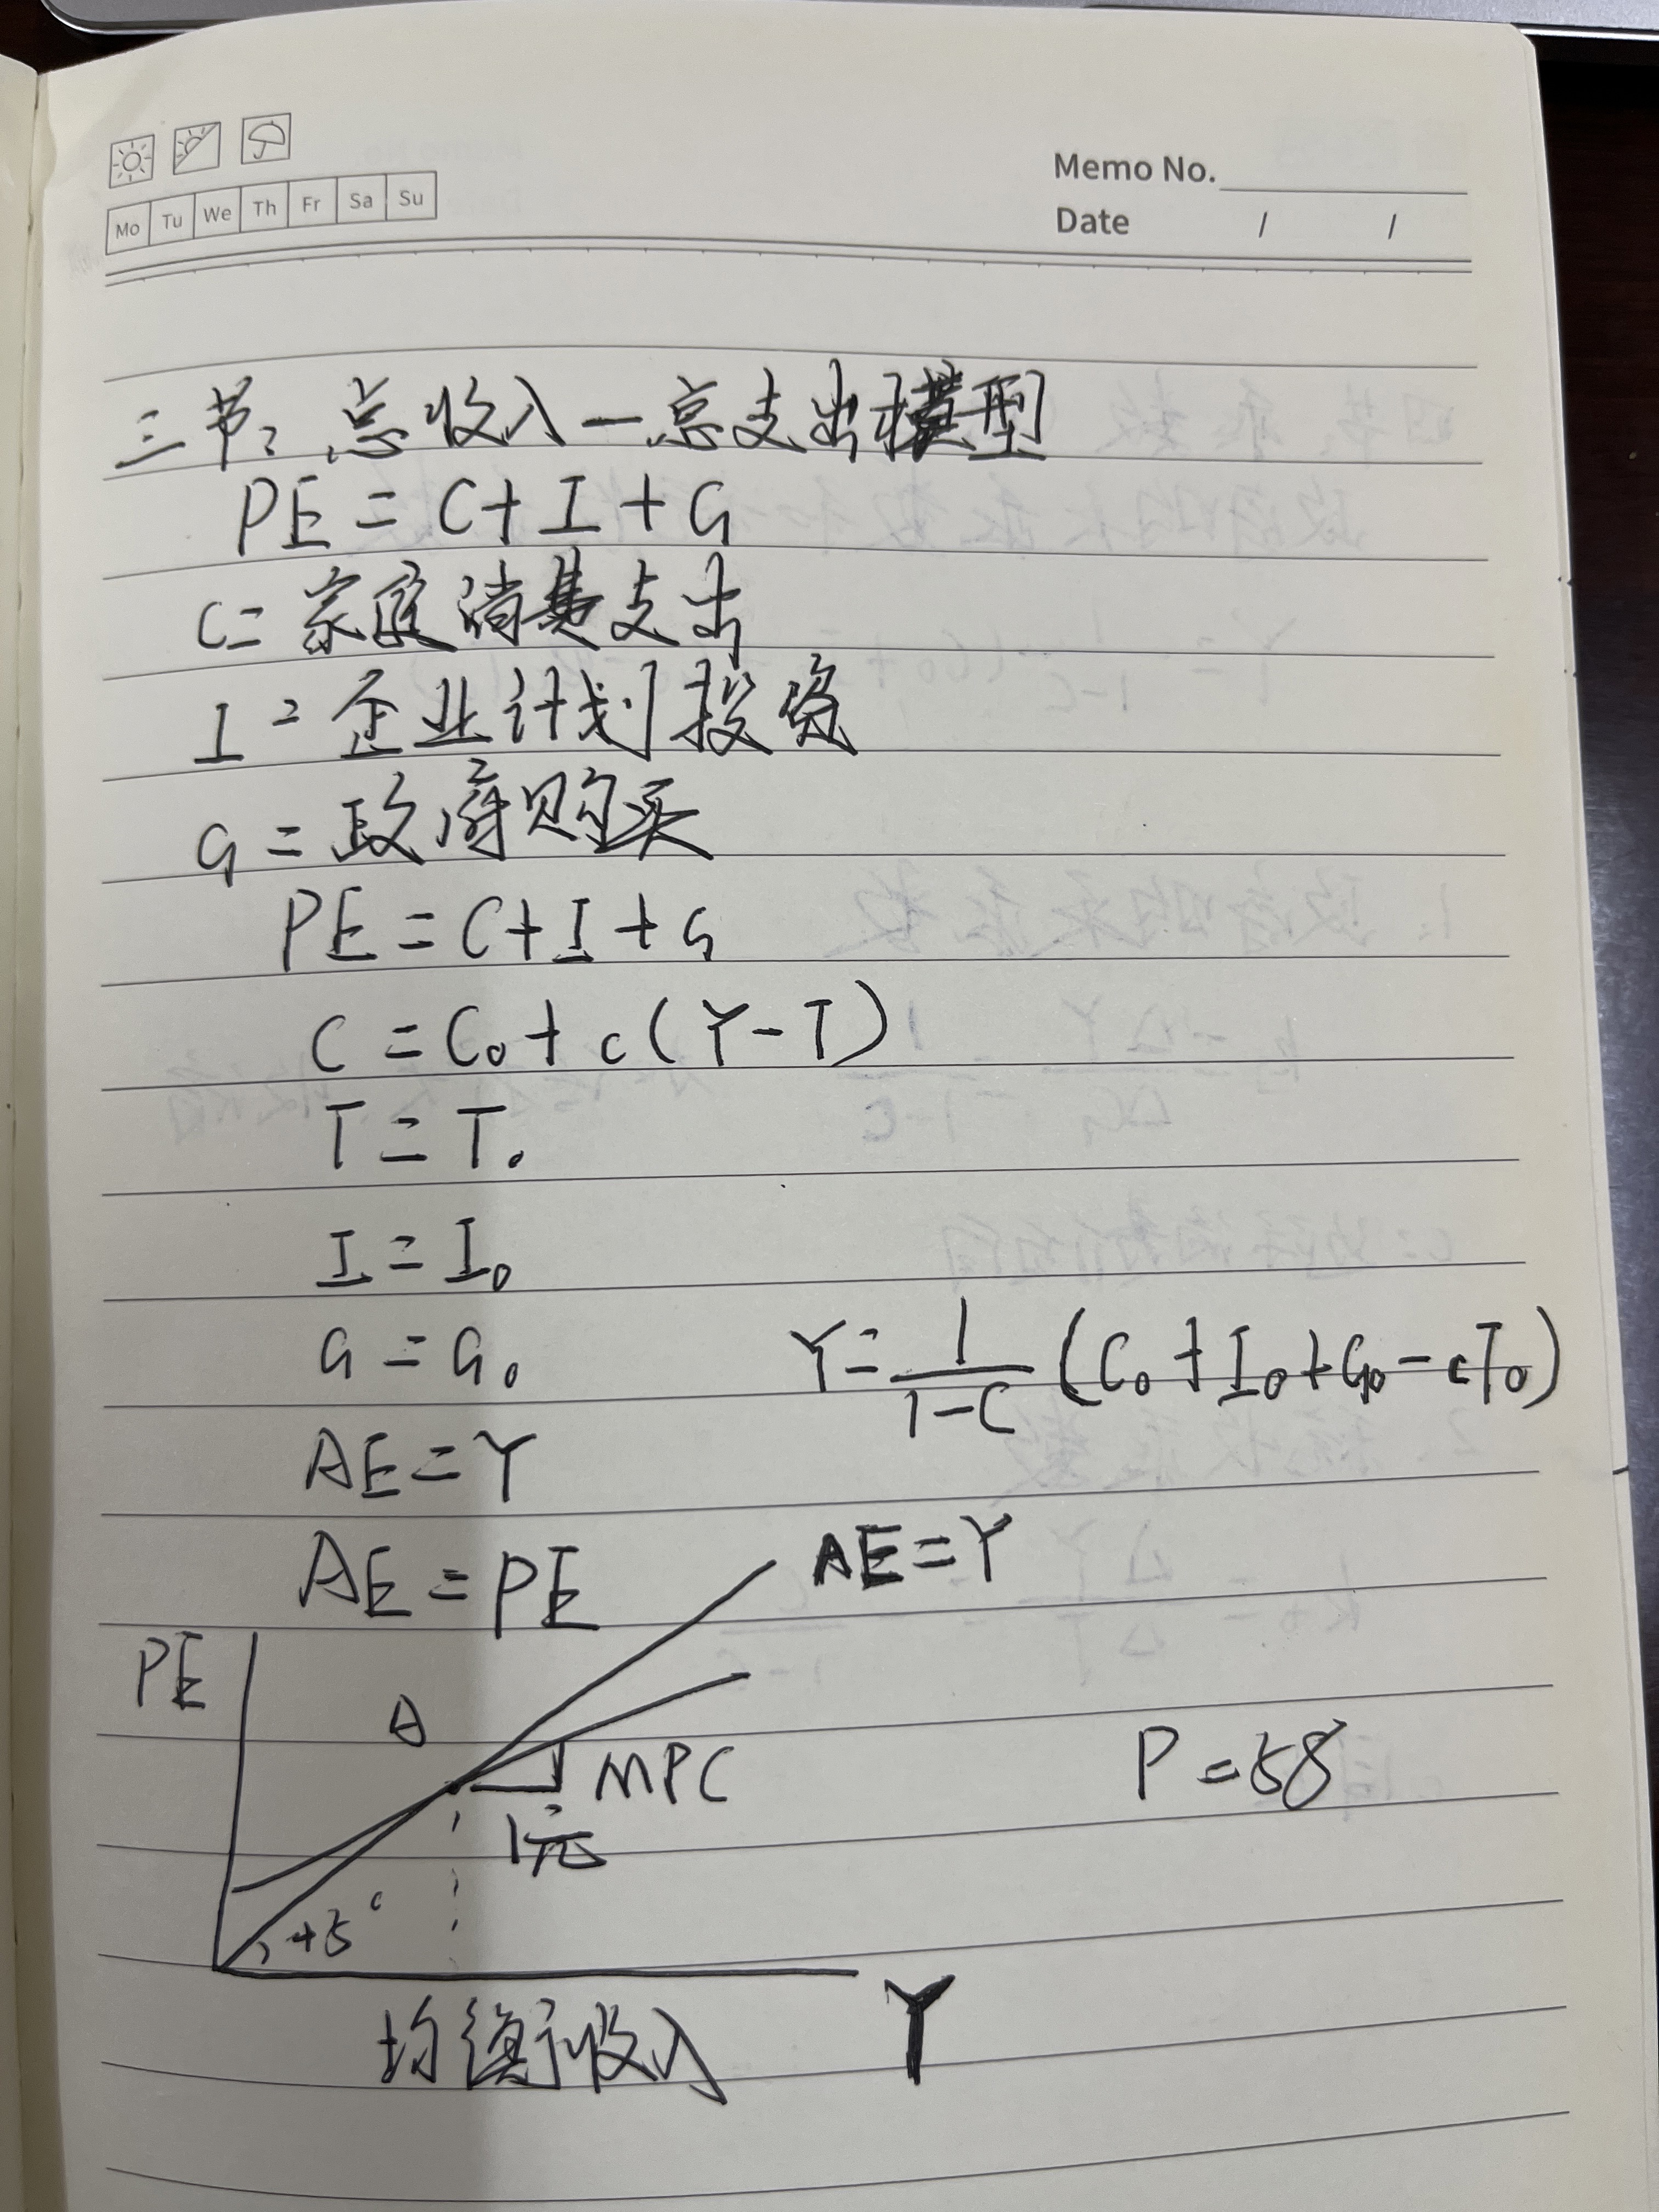 Memo No.
Mo Tu We Th Fr Sa Su
Date / /
三节、总收入—总支出模型
PE = C + I + G
C = 家庭消费支出
I = 企业计划投资
G = 政府购买
PE = C + I + G
C = C₀ + c(Y - T)
T = T₀
I = I₀
G = G₀
Y = 1/(1-C) (C₀ + I₀ + G₀ - cT₀)
AE = Y
AE = PE
AE = Y
PE
A
MPC
P = 58
1元
45°
Y
均衡收入